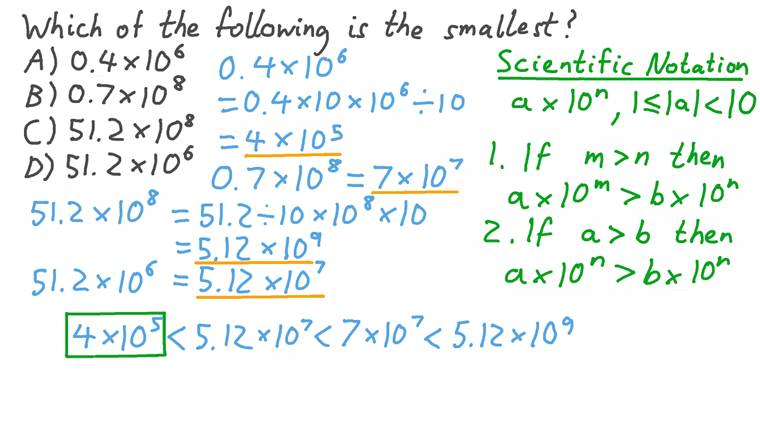 Which of the following is the smallest?
A) 0.4×10⁶
B) 0.7×10⁸
C) 51.2×10⁸
D) 51.2×10⁶
0.4×10⁶
=0.4×10×10⁶÷10
=4×10⁵
0.7×10⁸=7×10⁷
51.2×10⁸=51.2÷10×10⁸×10
=5.12×10⁹
51.2×10⁶=5.12×10⁷
Scientific Notation
a×10ⁿ, 1≤|a|<10
1. If m>n then
a×10ᵐ>b×10ⁿ
2. If a>b then
a×10ⁿ>b×10ⁿ
4×10⁵<5.12×10⁷<7×10⁷<5.12×10⁹